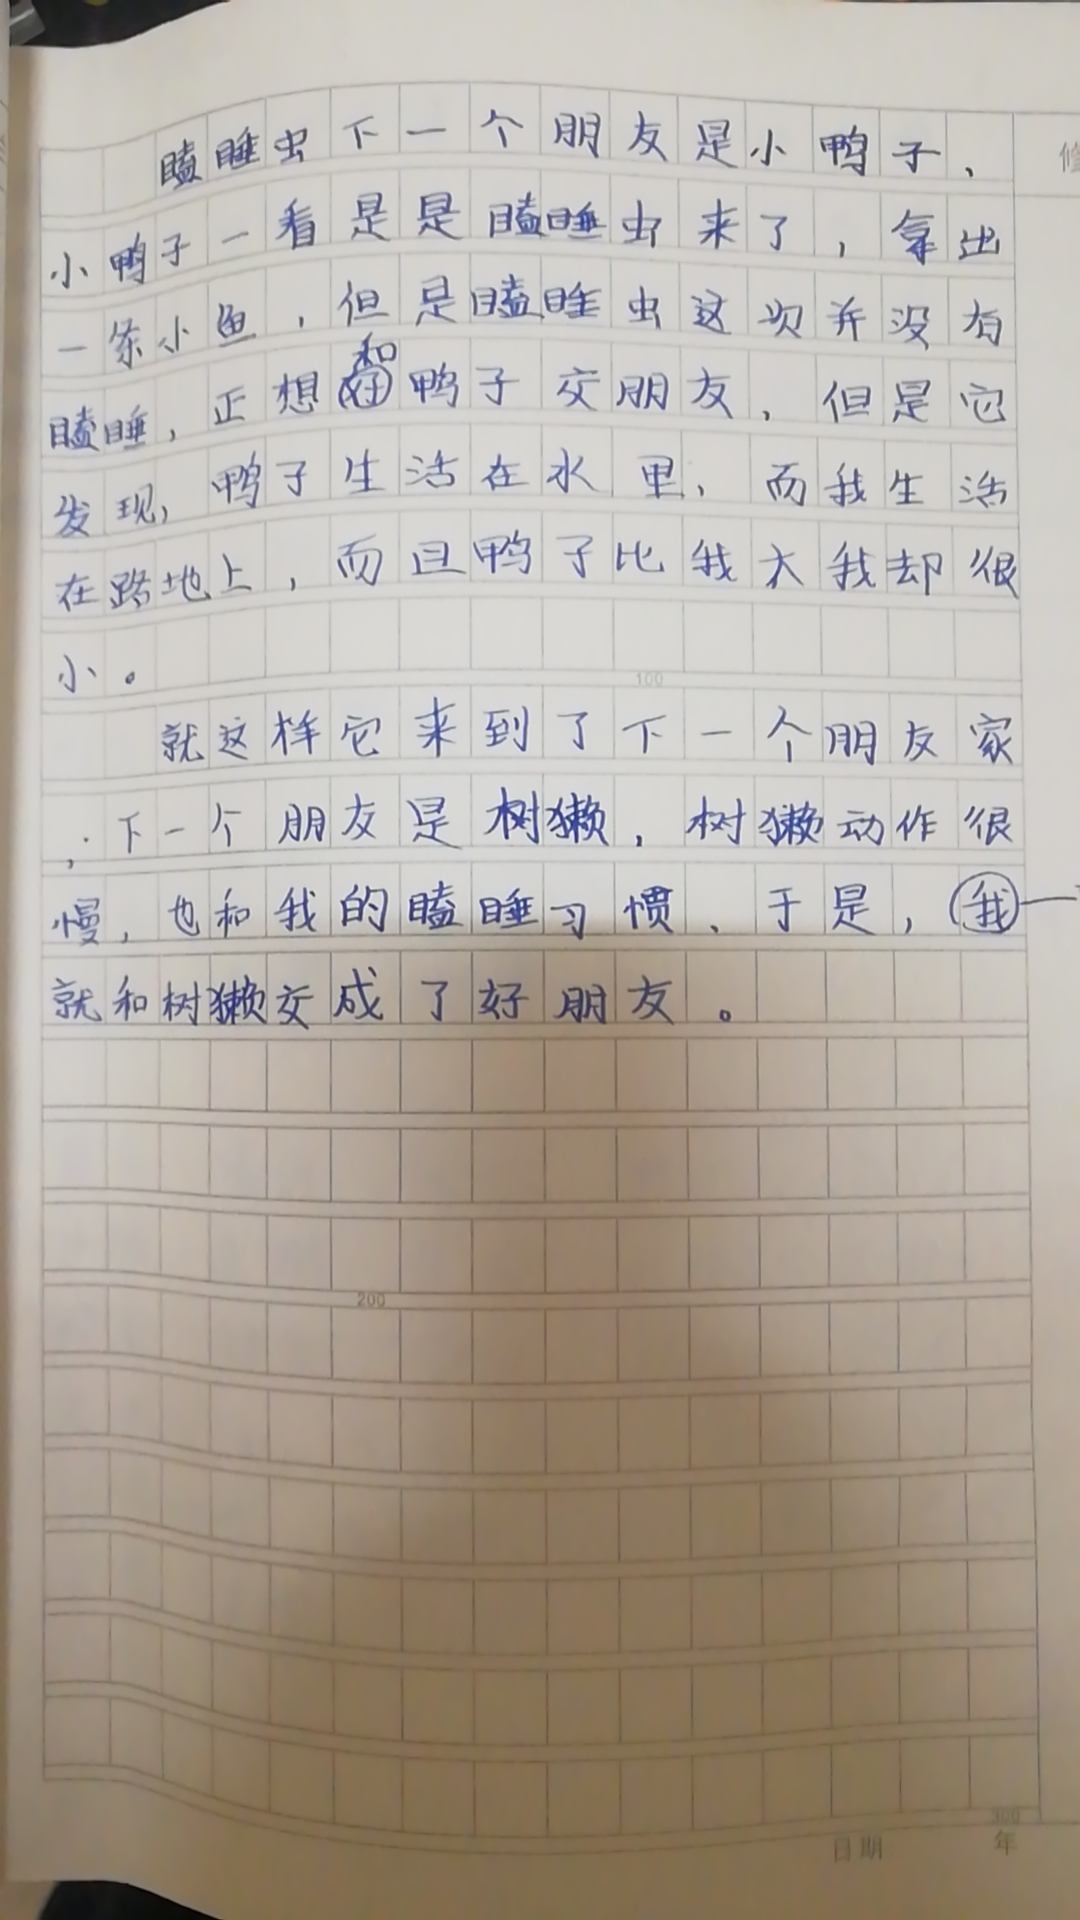 瞌睡虫下一个朋友是小鸭子、
小鸭子一看是是瞌睡虫来了，拿出
一条小鱼，但是瞌睡虫这次并没有
瞌睡，正想和鸭子交朋友，但是它
发现，鸭子生活在水里、而我生活
在路地上，而且鸭子比我大我却很
小。
100
就这样它来到了下一个朋友家
，下一个朋友是树獭，树獭动作很
慢，也和我的瞌睡习惯、于是，我
就和树獭交成了好朋友。
200
300
日期 年